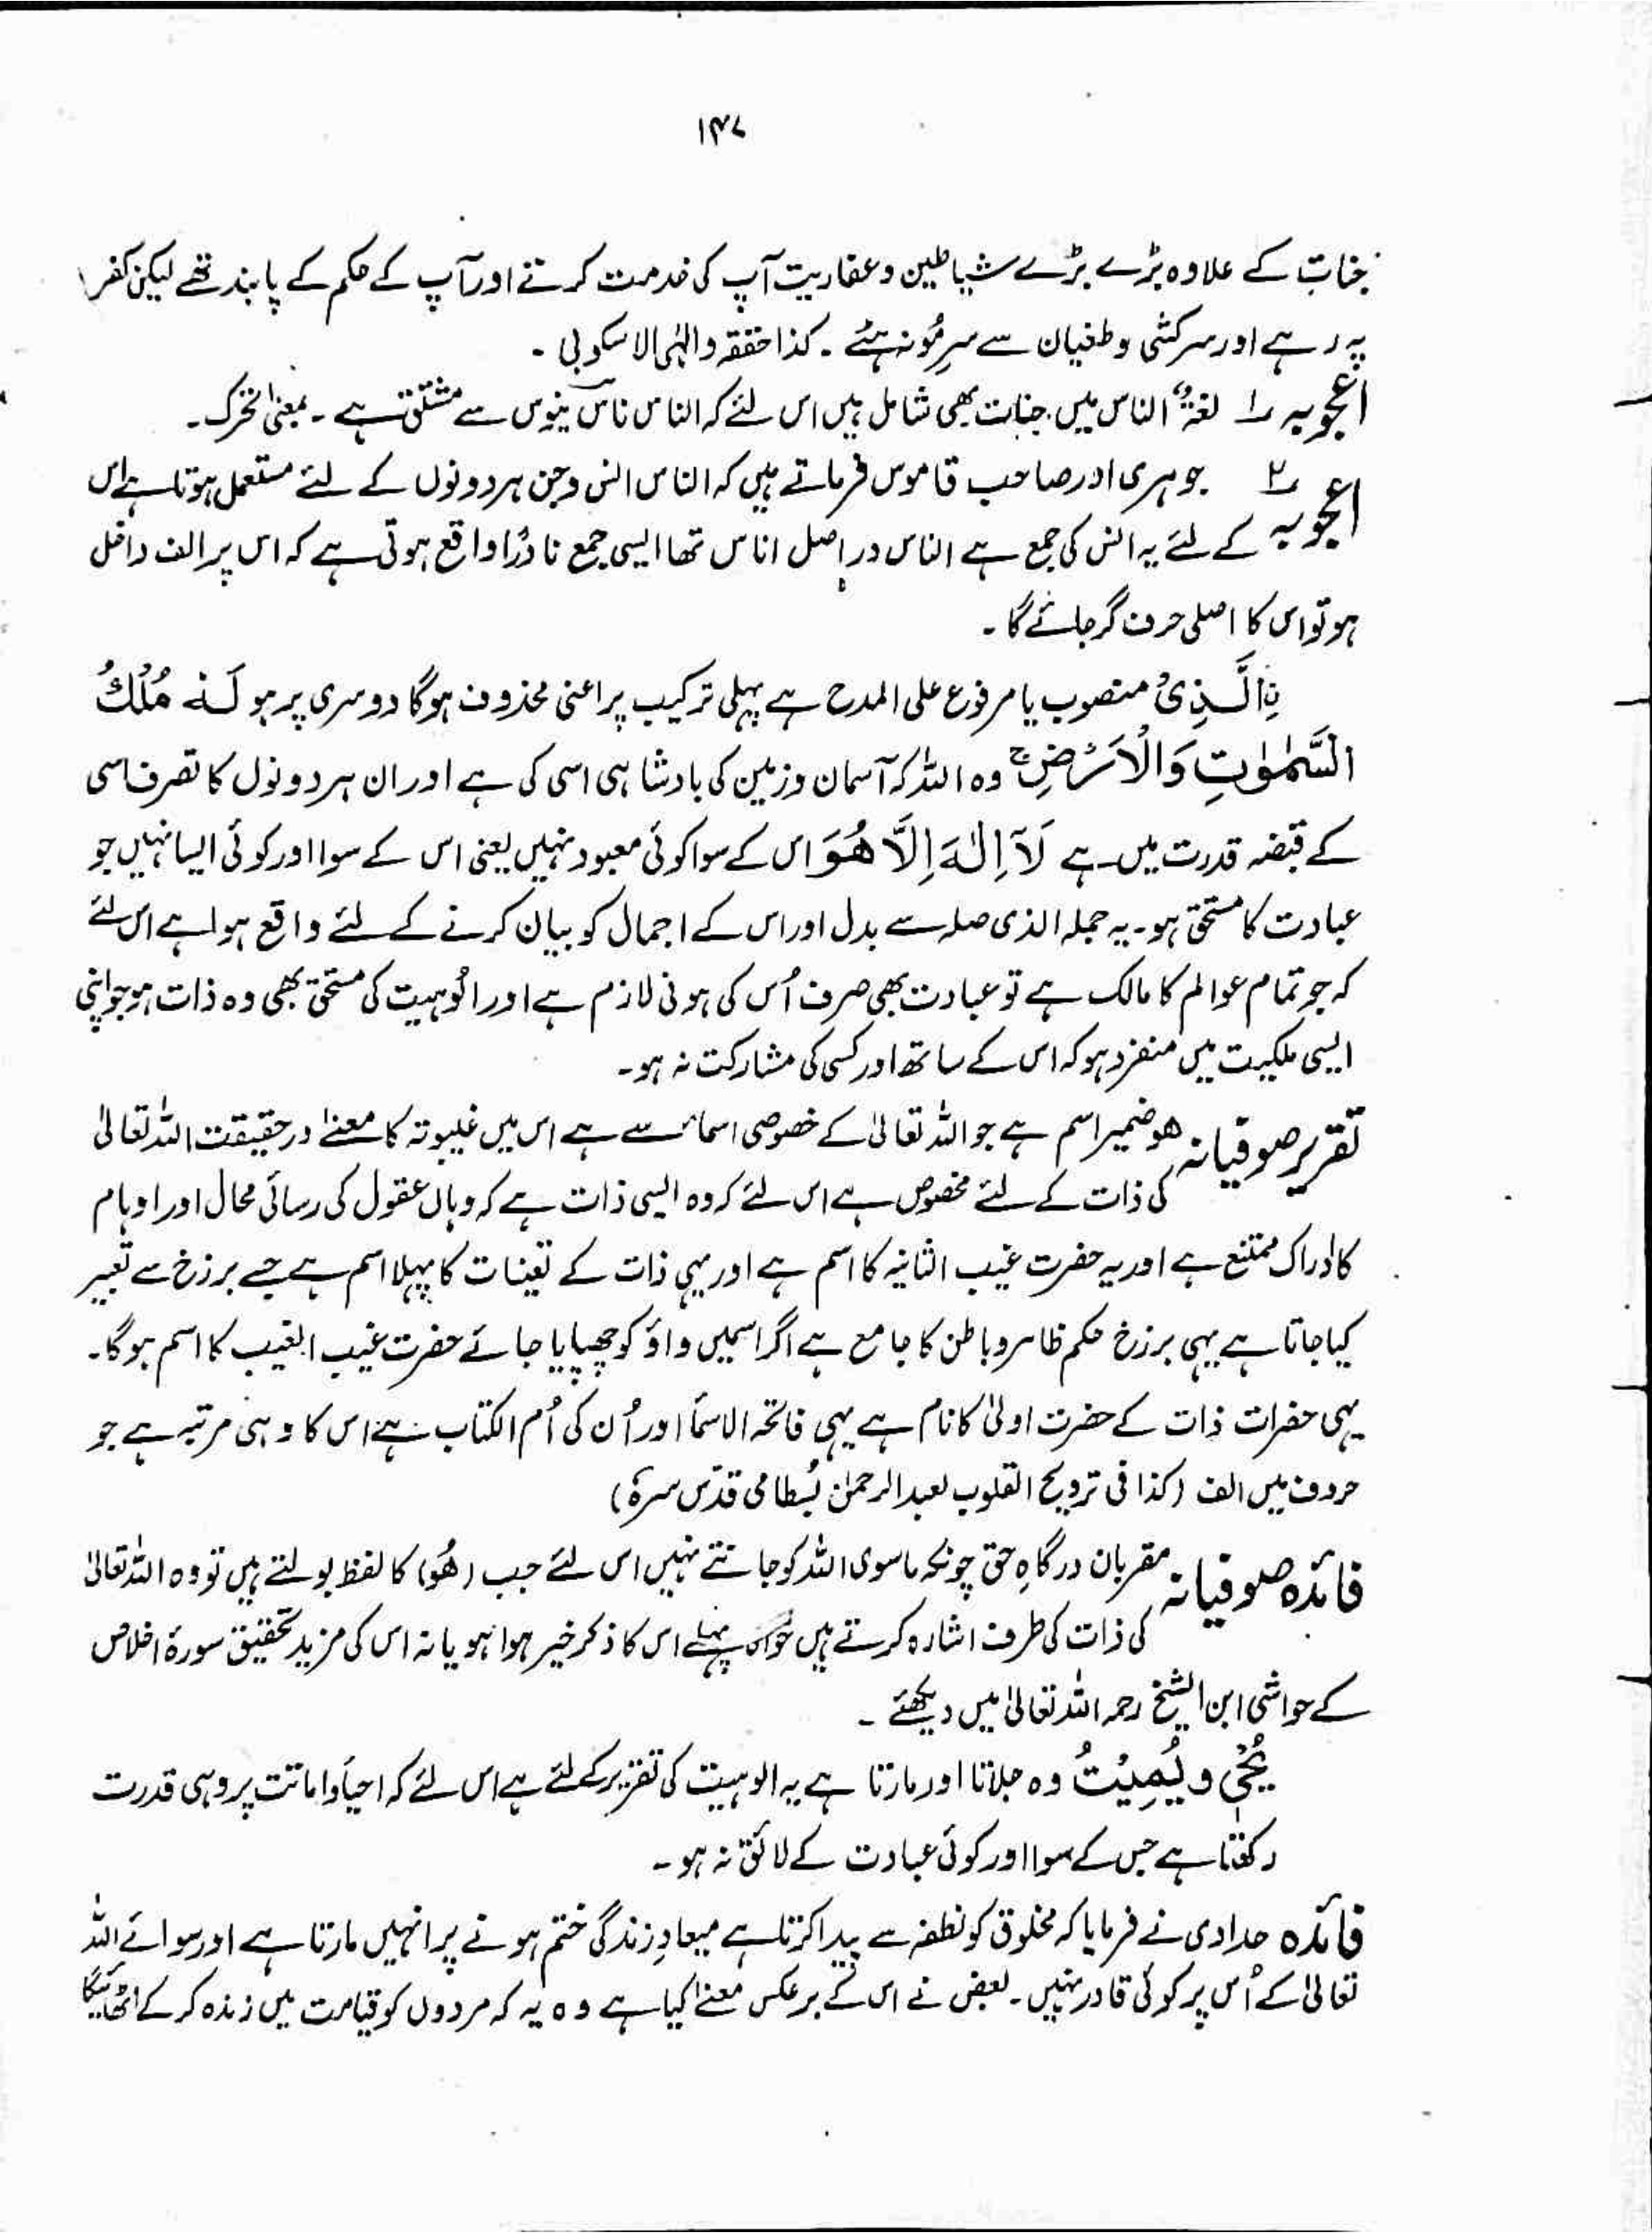 ۱۴۷
جنات کے علاوہ بڑے بڑے شیاطین و عفاریت آپ کی خدمت کرتے اور آپ کے حکم کے پابند تھے لیکن کفر
پہ رہے اور سرکشی و طغیان سے سرِمُو نہ ہٹے ۔ کذا حققہ والہٰی الاسکوبی ۔
اعجوبہ ۱ لغۃً الناس میں جنات بھی شامل ہیں اس لئے کہ الناس ناس ینوس سے مشتق ہے ۔ بمعنیٰ تحرک ۔
اعجوبہ ۲ جوہری اور صاحب قاموس فرماتے ہیں کہ الناس انس و جن ہر دونوں کے لئے مستعمل ہوتا ہے اس
کے لئے یہ انس کی جمع ہے الناس در اصل اناس تھا ایسی جمع نادرًا واقع ہوتی ہے کہ اس پر الف داخل
ہو تو اس کا اصلی حرف گر جائے گا ۔
نِالَّذِیْ منصوب یا مرفوع علی المدح ہے پہلی ترکیب پر اعنی محذوف ہوگا دوسری پر ہو لَہٗ مُلْكُ
السَّمٰوٰتِ وَالْاَرْضِ ج وہ اللہ کہ آسمان و زمین کی بادشاہی اسی کی ہے اور ان ہر دونوں کا تصرف اسی
کے قبضہ قدرت میں ہے لَآ اِلٰہَ اِلَّا ھُوَ اس کے سوا کوئی معبود نہیں یعنی اس کے سوا اور کوئی ایسا نہیں جو
عبادت کا مستحق ہو ۔ یہ جملہ الذی صلہ سے بدل اور اس کے اجمال کو بیان کرنے کے لئے واقع ہوا ہے اس لئے
کہ جو تمام عوالم کا مالک ہے تو عبادت بھی صرف اُس کی ہونی لازم ہے اور الُوہیت کی مستحق بھی وہ ذات ہو جو اپنی
ایسی ملکیت میں منفرد ہو کہ اس کے ساتھ اور کسی کی مشارکت نہ ہو ۔
تقریر صوفیانہ ھو ضمیر اسم ہے جو اللہ تعالیٰ کے خصوصی اسماء سے ہے اس میں غیبوتہ کا معنےٰ در حقیقت اللہ تعالیٰ
کی ذات کے لئے مخصوص ہے اس لئے کہ وہ ایسی ذات ہے کہ وہاں عقول کی رسائی محال اور اوہام
کا ادراک ممتنع ہے اور یہ حضرت غیب الثانیہ کا اسم ہے اور یہی ذات کے تعینات کا پہلا اسم ہے جسے برزخ سے تعبیر
کیا جاتا ہے یہی برزخ حکم ظاہر و باطن کا جامع ہے اگر اسمیں واؤ کو چھپایا جائے حضرت غیب الغیب کا اسم ہوگا ۔
یہی حضرات ذات کے حضرت اولیٰ کا نام ہے یہی فاتحۃ الاسمأ اور اُن کی اُم الکتاب ہے اس کا وہی مرتبہ ہے جو
حروف میں الف (کذا فی ترویح القلوب لعبدالرحمٰن بُسطامی قدّس سرہٗ)
فائدہ صوفیانہ مقربان درگاہِ حق چونکہ ماسوی اللہ کو جانتے نہیں اس لئے جب (ھُو) کا لفظ بولتے ہیں تو وہ اللہ تعالیٰ
کی ذات کی طرف اشارہ کرتے ہیں خواہ پہلے اس کا ذکر خیر ہوا ہو یا نہ اس کی مزید تحقیق سورۂ اخلاص
کے حواشی ابن الشیخ رحمہ اللہ تعالیٰ میں دیکھئے ۔
یُحْیٖ و یُمِیْتُ وہ جلاتا اور مارتا ہے یہ الوہیت کی تقریر کے لئے ہے اس لئے کہ احیأ و اماتت پر وہی قدرت
رکھتا ہے جس کے سوا اور کوئی عبادت کے لائق نہ ہو ۔
فائدہ حدادی نے فرمایا کہ مخلوق کو نطفہ سے پیدا کرتا ہے میعادِ زندگی ختم ہونے پر انہیں مارتا ہے اور سوائے اللہ
تعالیٰ کے اُس پر کوئی قادر نہیں ۔ بعض نے اس کے برعکس معنےٰ کیا ہے وہ یہ کہ مردوں کو قیامت میں زندہ کر کے اٹھائیگا